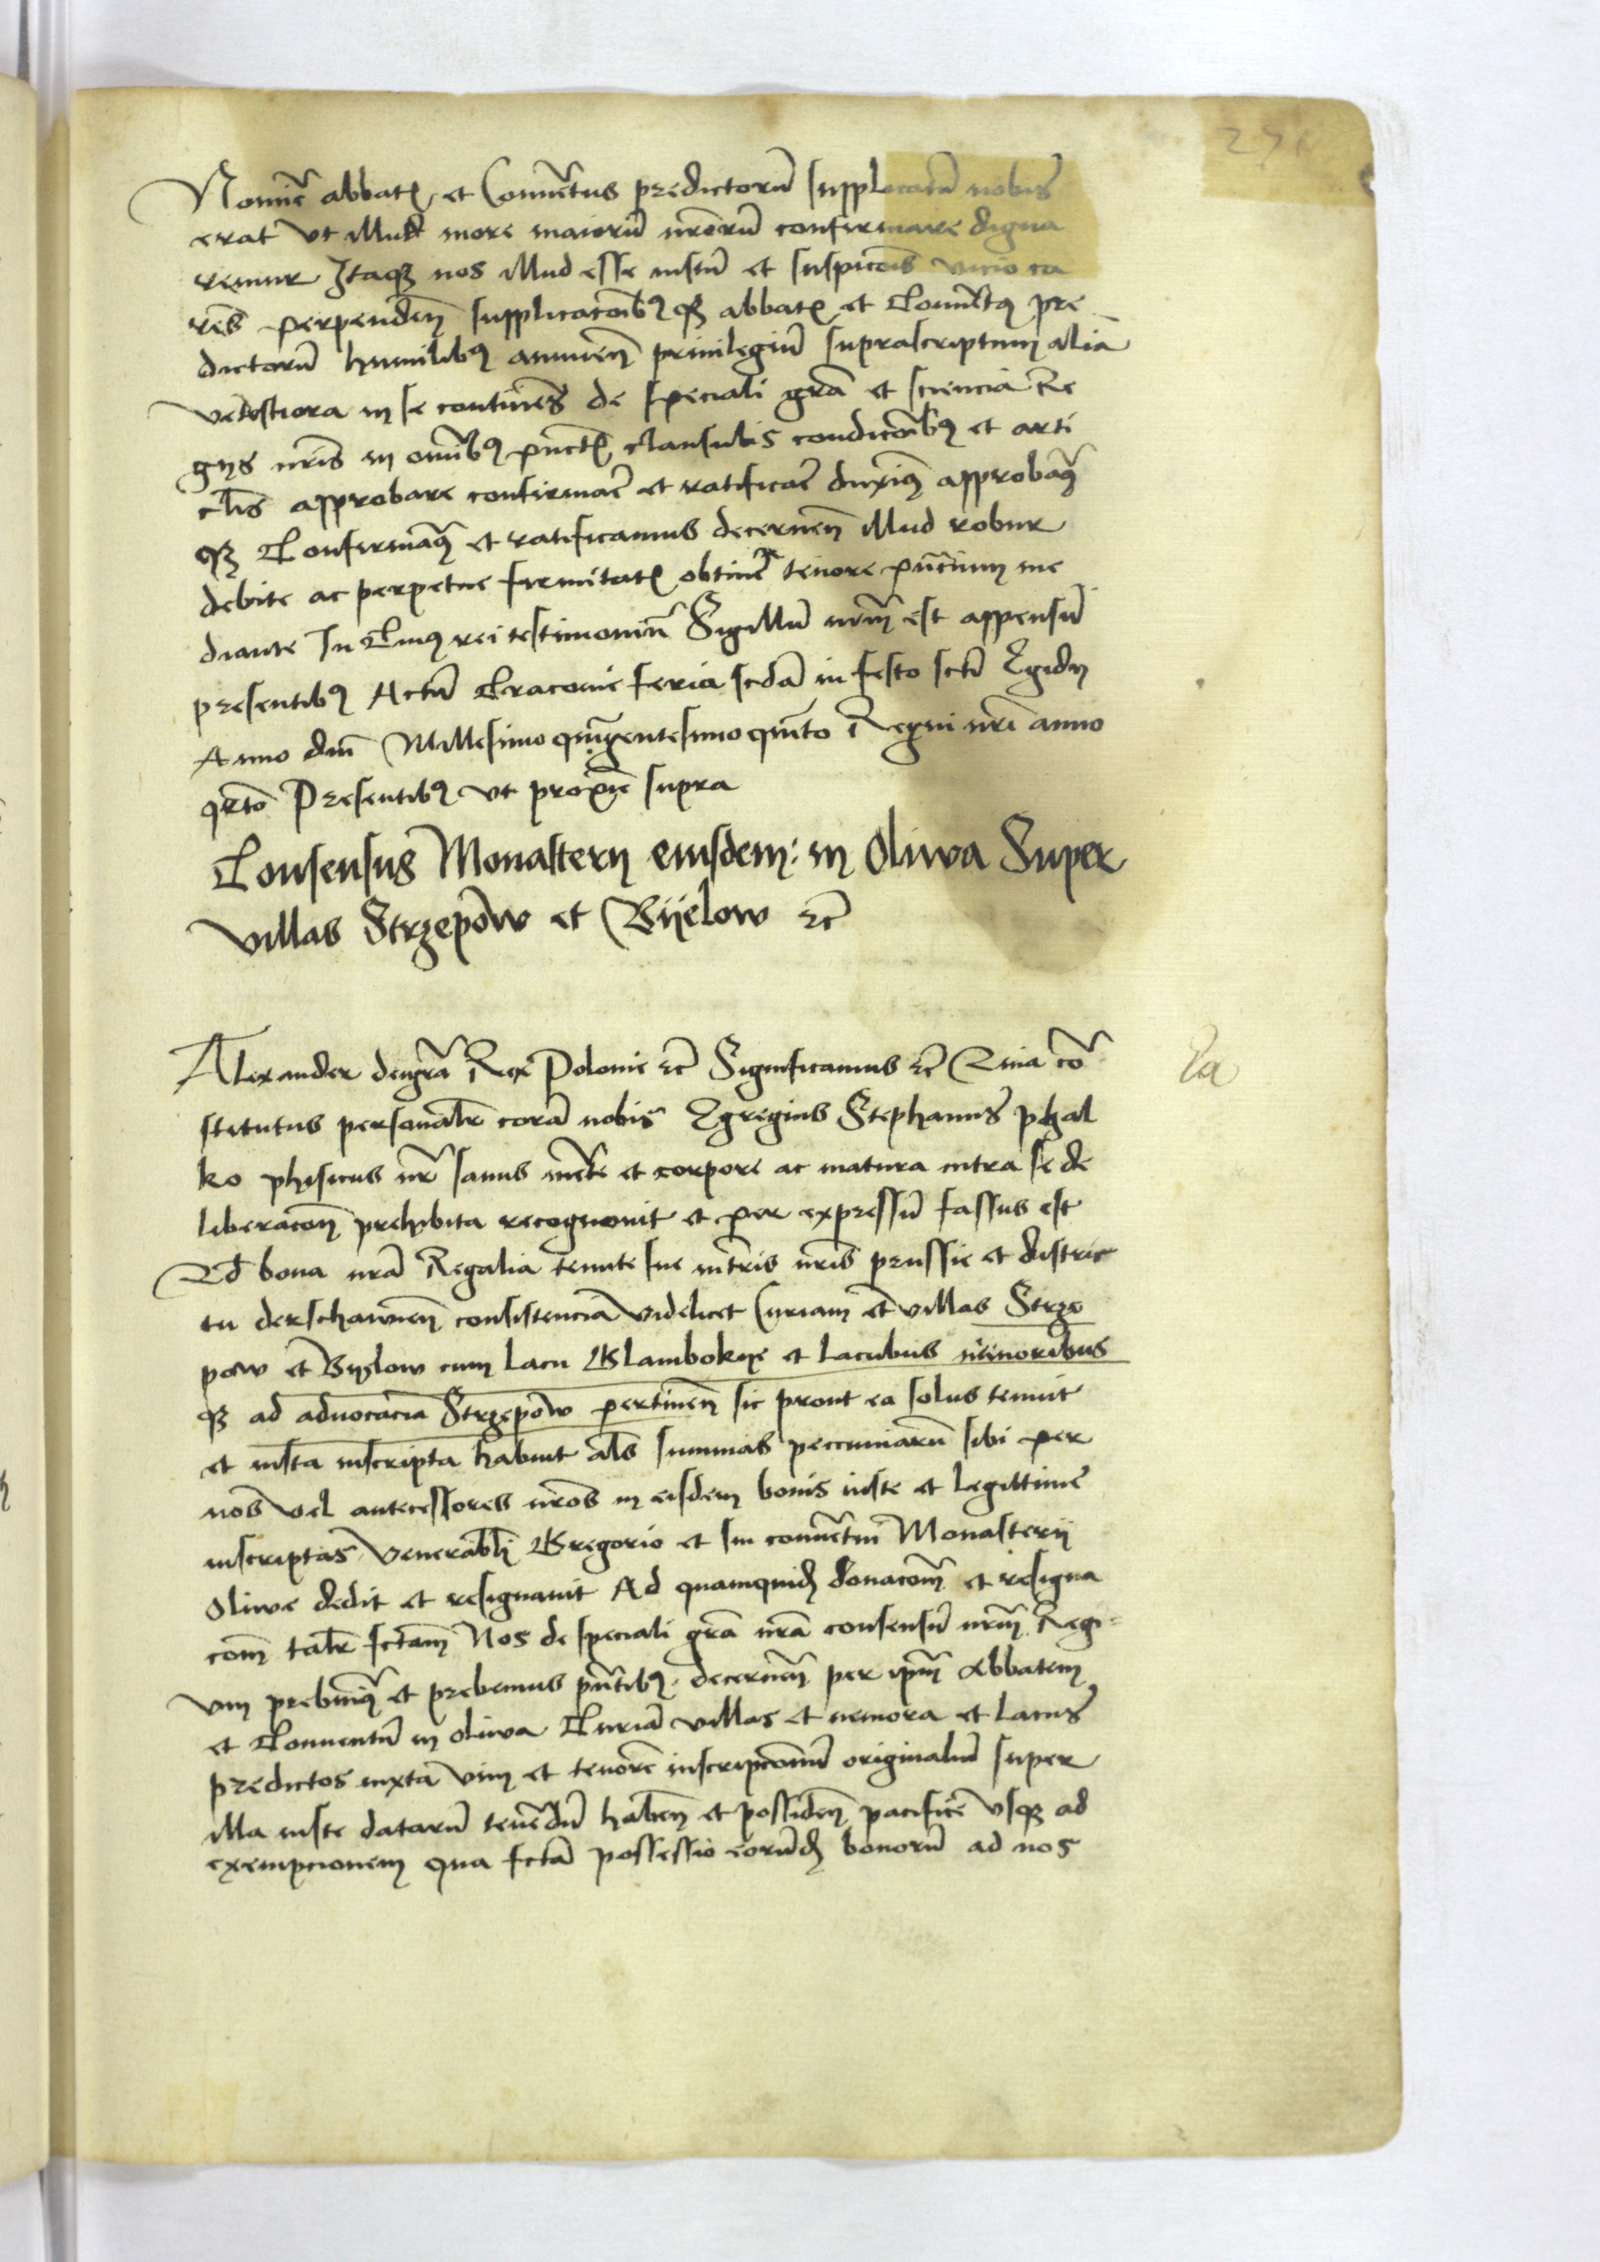 Nomīe abbatꝭ et Conuētus predictorū supplicatū nobis
erat vt illud more maiorū nr̄orū confirmare digna
remur Itaqꝫ nos illud esse iustū et suspicōis vicio ca
rēs perpendeñ supplicacōibꝰ qꝫ abbatꝭ et Conuētꝰ pre
dictorū humilibꝰ annueñ priuilegiū suprascriptum alia
vetustiora in se continēs de speciali gr̄a et sciencia Re
gijs nr̄is in om̄ibꝰ pūctꝭ clausulis condicōibꝰ et arti
cl̄is approbare confirmar̄ et ratificar̄ duximꝰ approbamꝰ
qꝫ Confirmamꝰ et ratificamus decerneñ illud robur
debite ac perpetue firmitatꝭ obtiner̄ tenore pn̄cium me
diante In Cuiꝰ rei testimoniū Sigillū nr̄m est appensū
presentibꝰ Actū Cracouie feria scd̄a in festo scti Egidij
Anno dn̄i Millesimo quīgentesimo quīto Regni nr̄i anno
qrto Presentibꝰ vt proxīe supra
Consensus Monasterij eiusdem: in Oliwa Super
villas Strzepōw et Bijelow ꝛc̄
Alexander dei gr̄a Rex Polonie ꝛc̄ Significamus ꝛc̄ Quia cō
stitutus personal̄r corā nobis Egregius Stephanus phal
ko phisicus nr̄ sanus mēte et corpore ac matura intra se de
liberacōn prehibita recognouit et per expressū fassus est
Qd̄ bona nr̄a Regalia tenute sue in tr̄is nr̄is prussie et distric
tu derschawieñ consistencia videlicet Curiam et villas Strze
pow et Byslow cum lacu Glambokye et lacubus nemoribus
qꝫ ad aduocaciā Strzepōw pertineñ sic prout ea solus tenuit
et iusta inscripta habuit al̄s summas peccuniarū sibi per
nos vel antecessores nr̄os in eisdem bonis iuste et legittime
inscriptas venerabl̄i Gregorio et sui conuētui Monasterij
Oliwe dedit et resignauit Ad quamquidē donacōm et resigna
cōm tal̄r fctam Nos de speciali gr̄a nr̄a consensū nr̄m Regi-
um prebuimꝰ et prebemus pn̄tibꝰ decerneñ per ip̄m Abbatem
et Conuentū in oliwa Curiā villas et nemora et lacus
predictos iuxta vim et tenorē inscripcionū originaliū super
illa iuste datarū tenēdū habeñ et possideñ pacifice vsqꝫ ad
exempcionem qua fcta possessio eorūdē bonorū ad nos